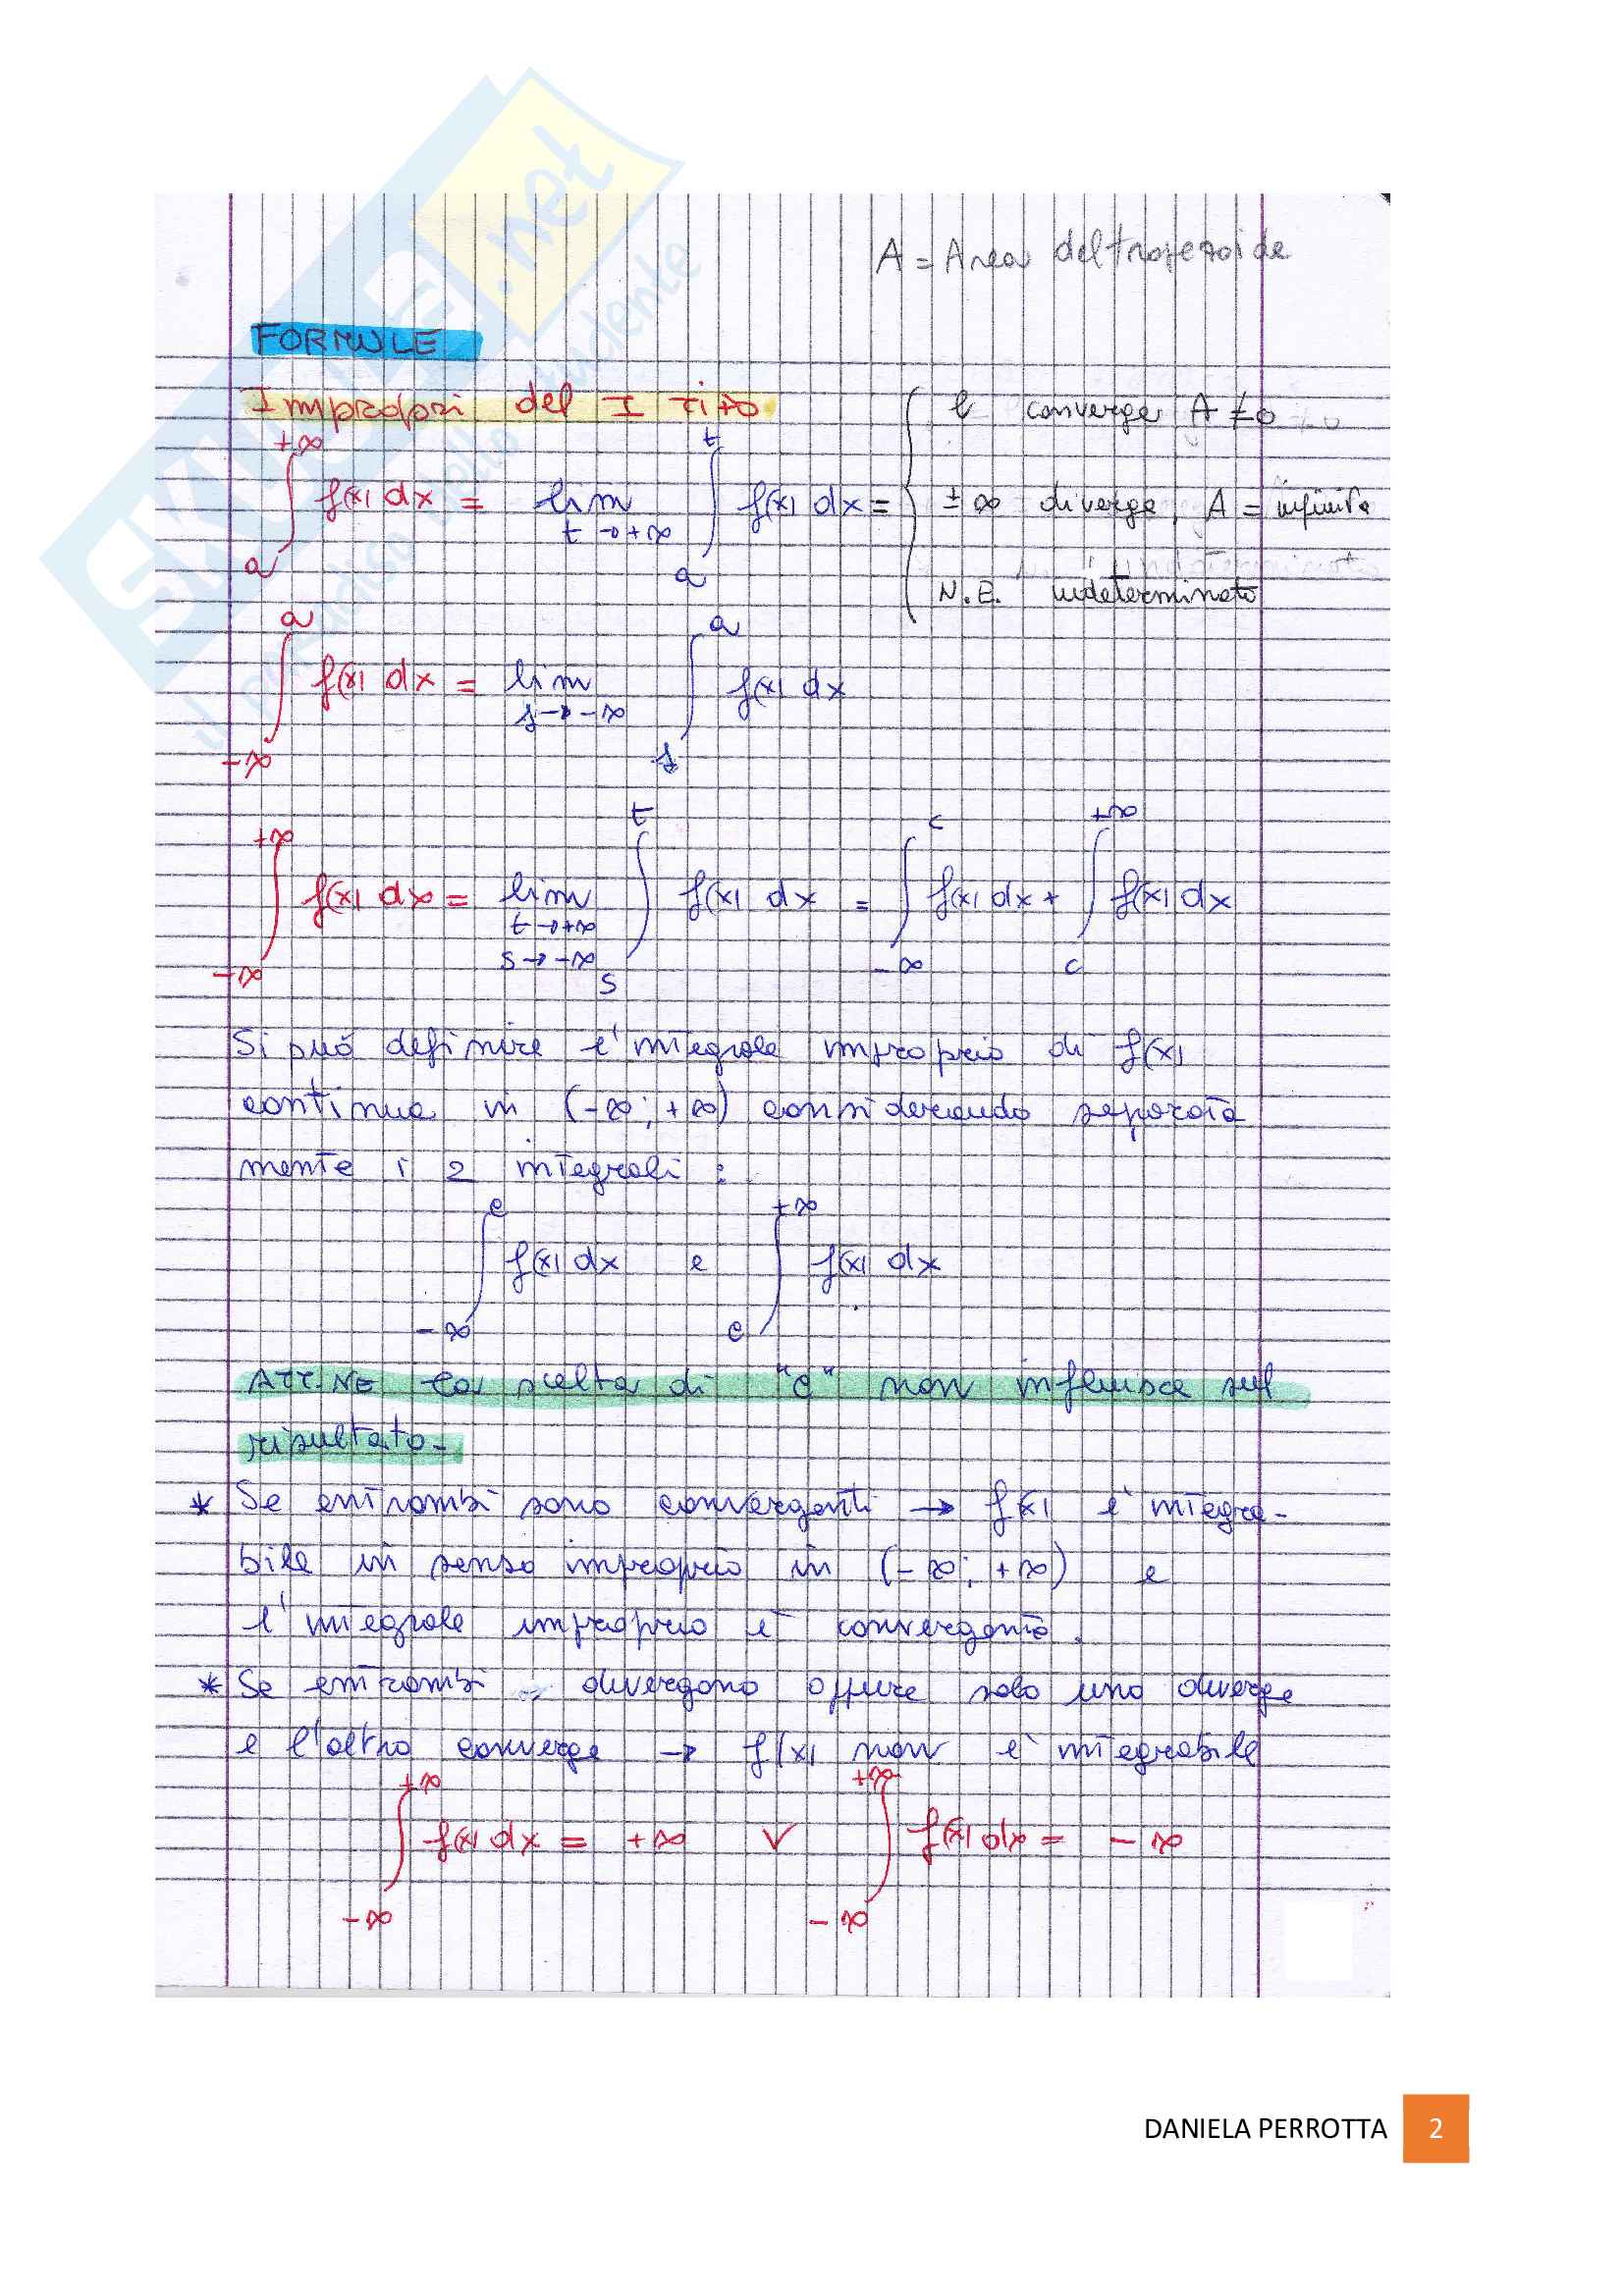 A = Area del trapezoide
FORMULE
Impropri del I tipo
∫ₐ^{+∞} f(x) dx = lim_{t→+∞} ∫ₐ^{t} f(x) dx = { l converge, A ≠ 0
± ∞ diverge, A = infinita
N.E. indeterminato
∫_{-∞}^{a} f(x) dx = lim_{s→-∞} ∫_{s}^{a} f(x) dx
∫_{-∞}^{+∞} f(x) dx = lim_{t→+∞ s→-∞} ∫_{s}^{t} f(x) dx = ∫_{-∞}^{c} f(x) dx + ∫_{c}^{+∞} f(x) dx
Si può definire l'integrale improprio di f(x)
continua in (-∞; +∞) considerando separata
mente i 2 integrali :
∫_{-∞}^{c} f(x) dx e ∫_{c}^{+∞} f(x) dx
ATT.NE la scelta di "c" non influisce sul
risultato-
* Se entrambi sono convergenti → f(x) è integra-
bile in senso improprio in (-∞; +∞) e
l'integrale improprio è convergente.
* Se entrambi divergono oppure solo uno diverge
e l'altro converge → f(x) non è integrabile
∫_{-∞}^{+∞} f(x) dx = +∞ V ∫_{-∞}^{+∞} f(x) dx = -∞
DANIELA PERROTTA 2
SKUOLA.net
il paradiso dello studente